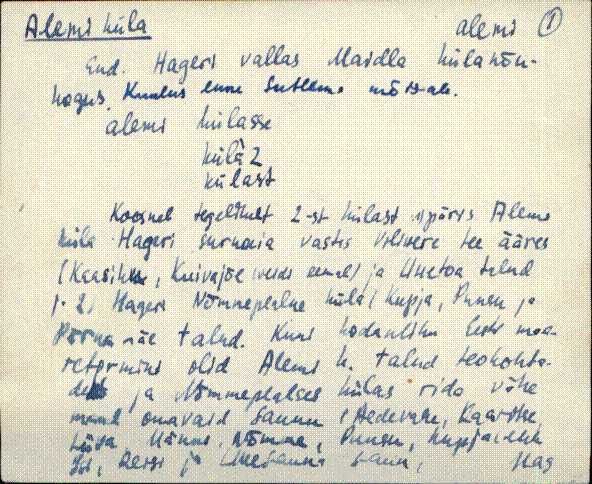 Alemi küla alemi 1
End. Hageri vallas Maidla külanõu-
kogus. Kuulus enne Sutlema mõisale.
alemi külasse
külà2
külast
Koosned tegelikult 2-st külast 1) päris Alemi
küla Hageri surnuaia vastas Vilivere tee ääres
(Kaasiku, Kuivajõe eemal) ja Uuetoa talud
j. 2) Hageri Nõmmepealne küla (Kupja, Punsu ja
Pärna-mäe talud. Kuni kodanliku Eesti maa-
reformini olid Alemi k. talud teokohta-
deks ja Nõmmepealses külas rida vähe
maad omavaid saunu (Aedevahe, Kaarste,
Uõune, Nõmme, Punsu,
ja Uuesauna saun, Hag